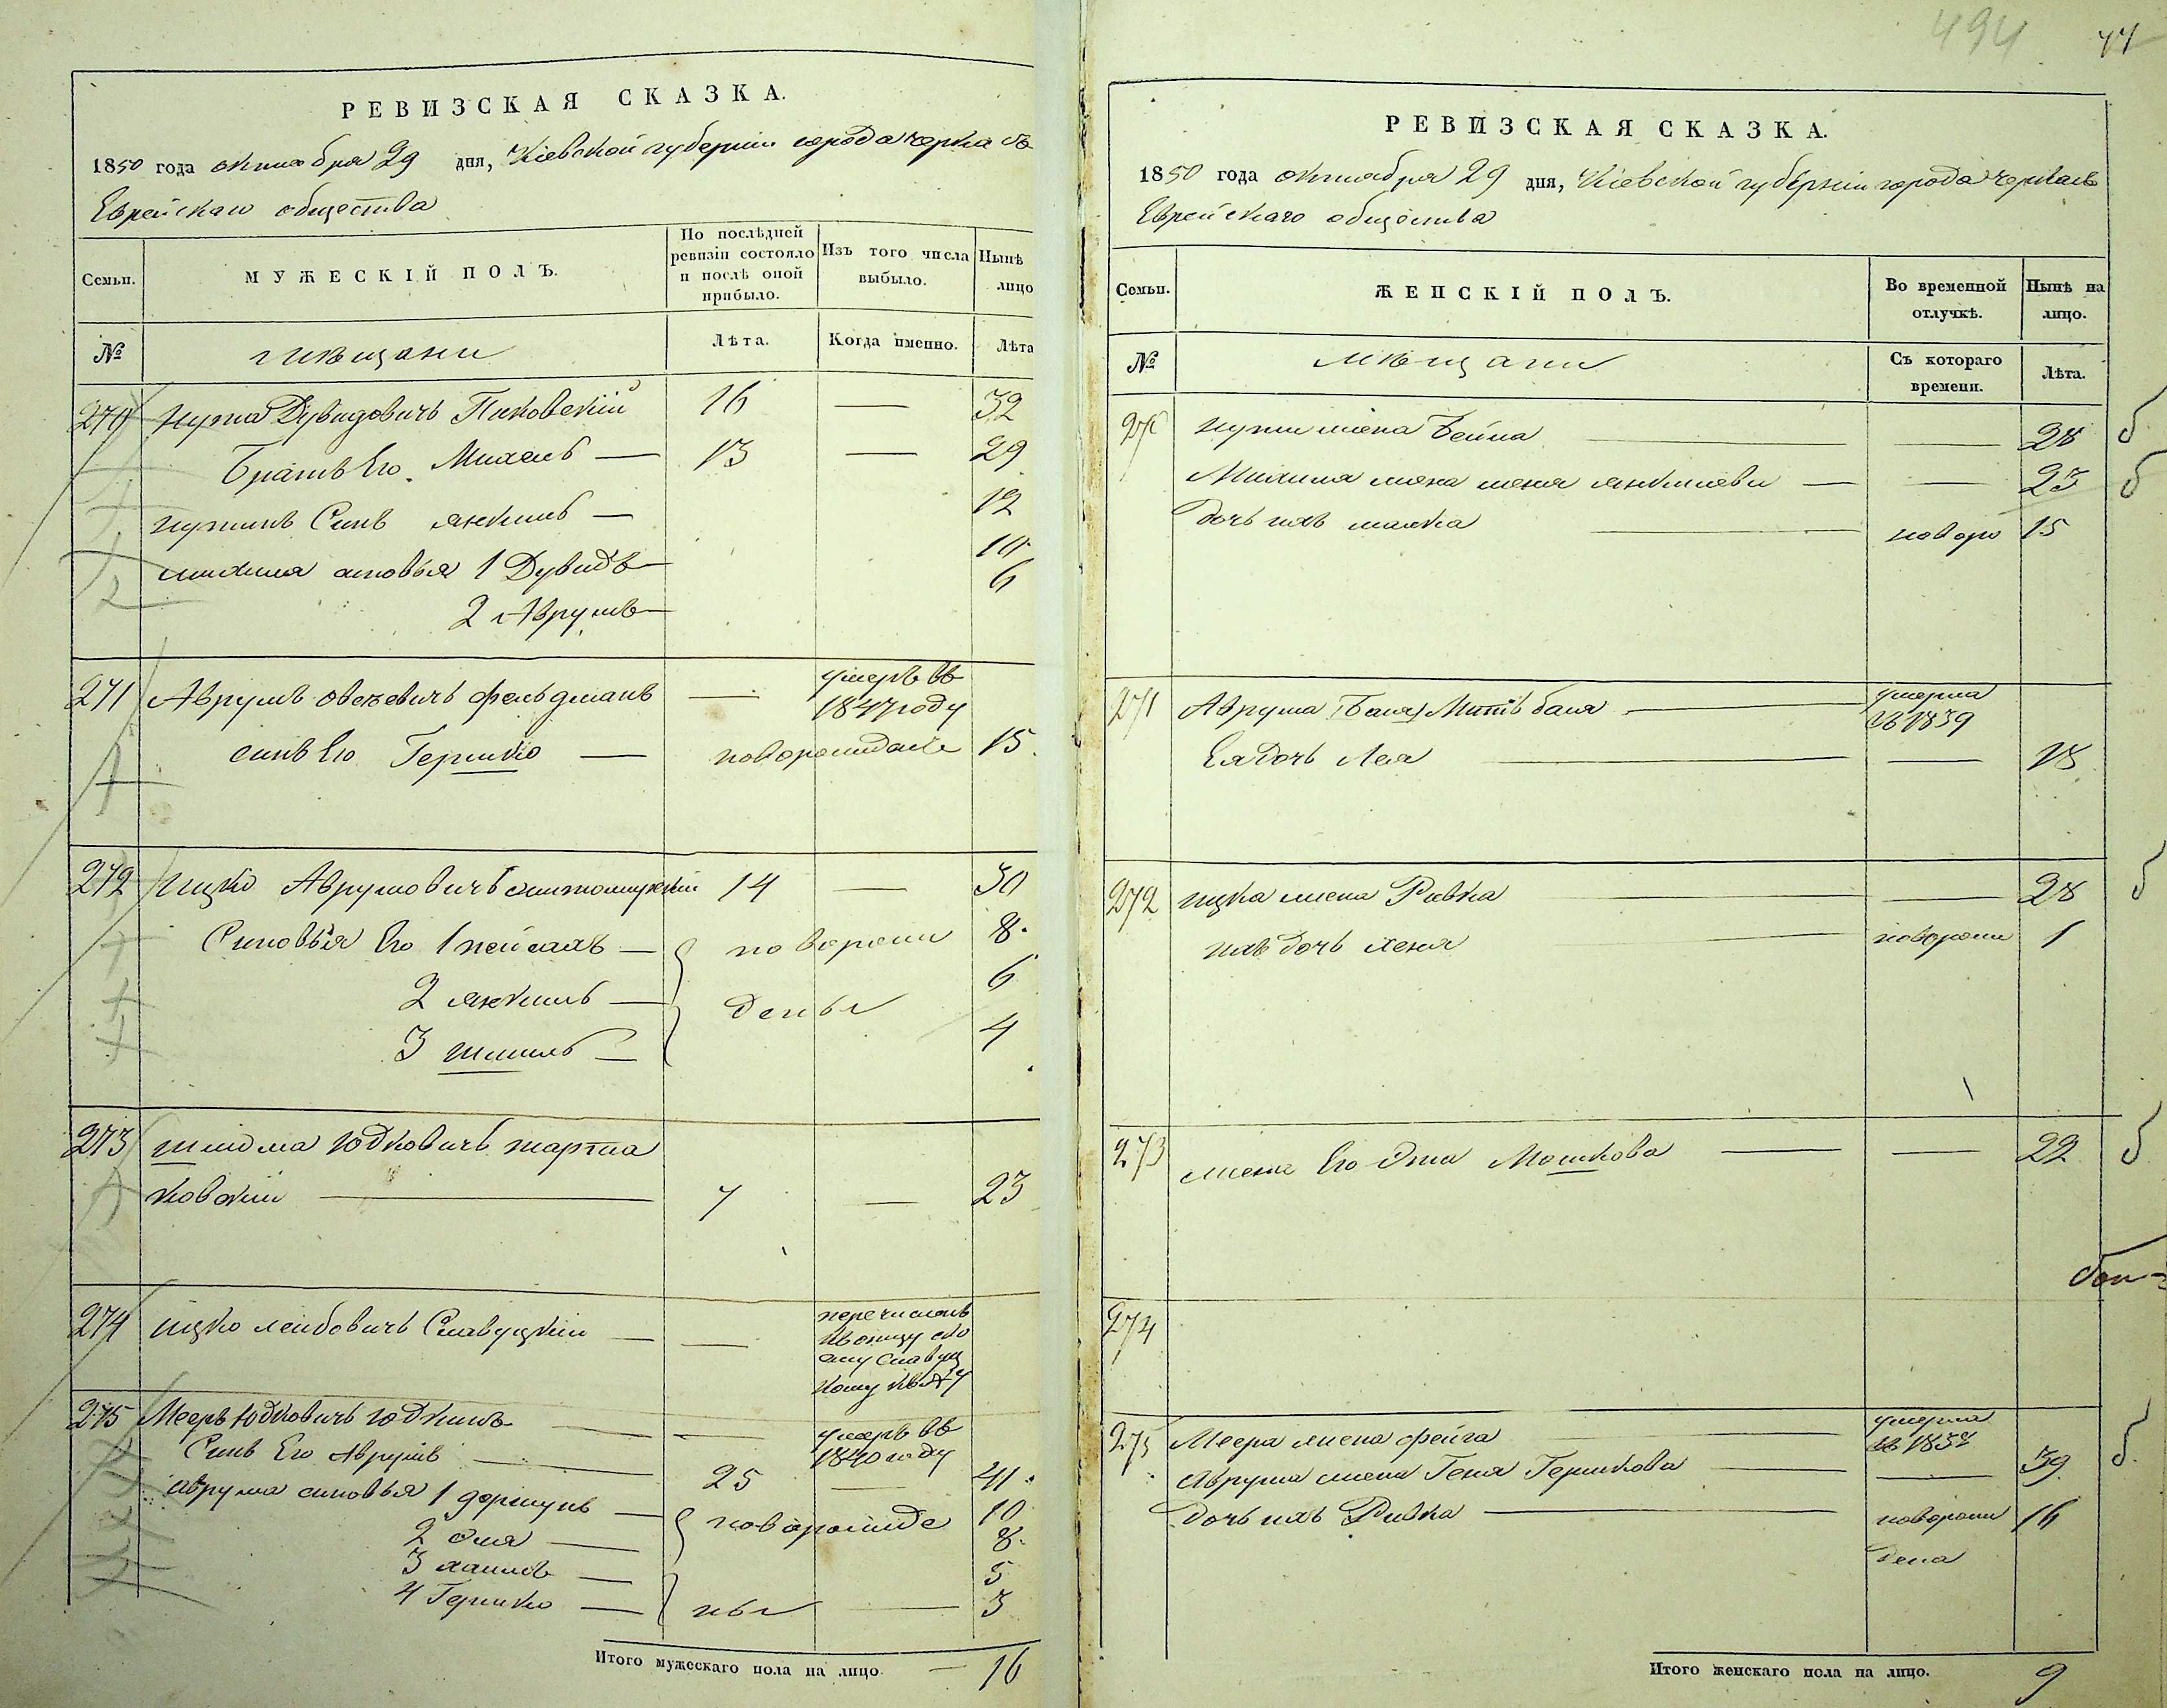 494 77
РЕВИЗСКАЯ СКАЗКА.
1850 года октября 29 дня, Кіевской губерніи города Черкасъ
Еврейскаго общества
Семьи. МУЖЕСКІЙ ПОЛЪ. По послѣдней ревизіи состояло и послѣ оной прибыло. Изъ того числа выбыло. Нынѣ лицо
№ мѣщани Лѣта. Когда именно. Лѣта
270 Нухим Дувидовичъ Пиковскій 16 — 32
Братъ Его Михель — 13 — 29
Нухимъ Синъ Янкель — 12
Михиля синовья 1 Дувидъ — 10
2 Аврумъ — 6
271 Аврумъ Овсеевичъ Фельдманъ — умеръ въ 1847 году
синъ Его Гершко — новорожда 15
272 Ицко Аврумовичъ 14 — 30
Синовья Его 1 Пейсахъ — новорожденъ 8
2 Янкель — 6
3 — 4
273 Шлиома Юдковичъ Тарта
ковскій — 7 — 23
274 Ицко Лейбовичъ Славуцкій — — перечисленъ
275 Мееръ Юдковичъ Юдкинъ — — умеръ въ 1840 году
Синъ Его Аврумъ — 25 — 41
Аврума синовья 1 — новорожде 10
2 — 8
3 Хаимъ — 5
4 Гершко — ны — 3
Итого мужескаго пола на лицо — 16
РЕВИЗСКАЯ СКАЗКА.
1850 года октября 29 дня, Кіевской губерніи города Черкасъ
Еврейскаго общества
Семьи. ЖЕНСКІЙ ПОЛЪ. Во временной отлучкѣ. Нынѣ на лицо.
№ мѣщани Съ котораго времени. Лѣта.
270 Нухим жена Бейла — — 28
Михиля жена Янкилева — — 23
Дочь ихъ Малка — новоро 15
271 Аврума (Баля) Мать Баля — умерла въ 1839
Ея дочь Лея — — 18
272 Ицка жена Ривка — — 28
ихъ дочь Хеня — новорож 1
273 жена Его Мошкова — — 22
274
275 Меера жена Фейга — умерла въ 1837
Аврума жена Геня Гершкова — — 39
Дочь ихъ Ривка — новорож 16
дена
Итого женскаго пола на лицо. 9